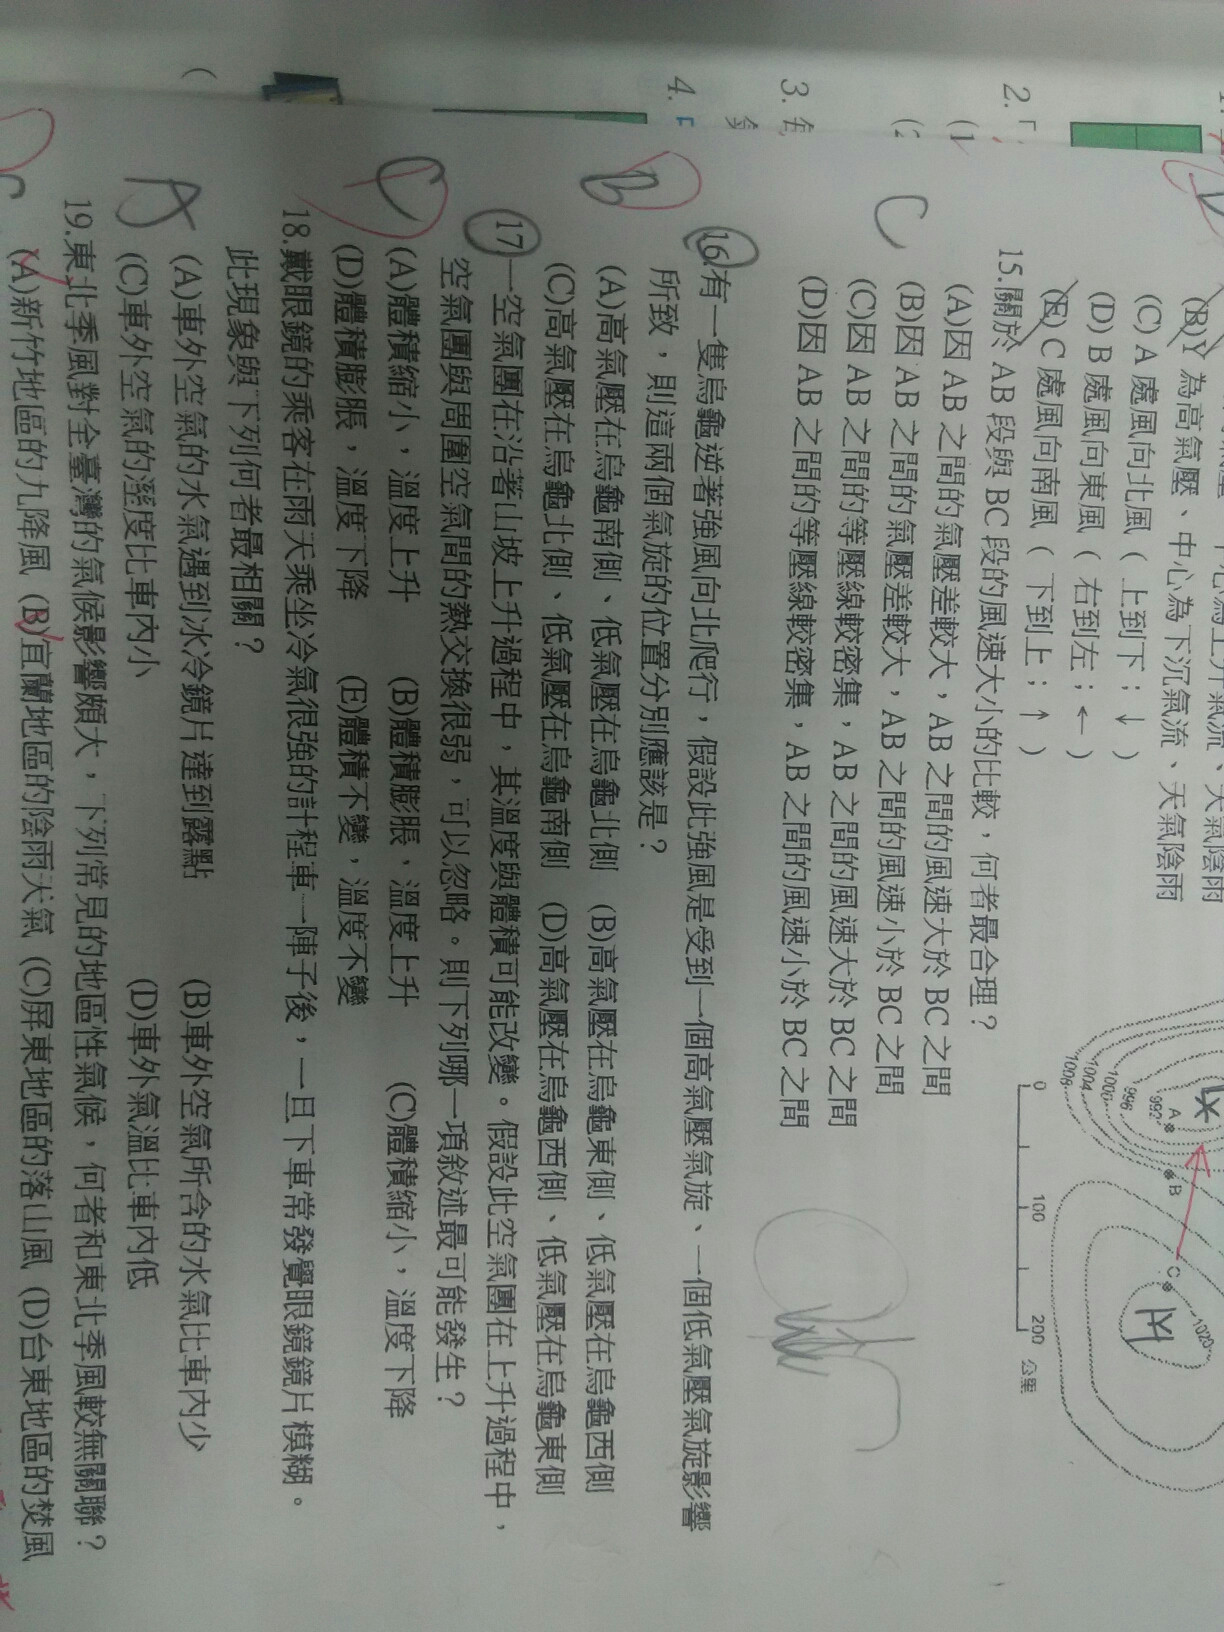 2.「
(1
(2
3.
4.
(B)Y 為高氣壓、中心為下沉氣流、天氣陰雨
(C) A 處風向北風（上到下；↓）
(D) B 處風向東風（右到左；←）
(E) C 處風向南風（下到上；↑）
15.關於 AB 段與 BC 段的風速大小的比較，何者最合理？
(A)因 AB 之間的氣壓差較大，AB 之間的風速大於 BC 之間
(B)因 AB 之間的氣壓差較大，AB 之間的風速小於 BC 之間
(C)因 AB 之間的等壓線較密集，AB 之間的風速大於 BC 之間
(D)因 AB 之間的等壓線較密集，AB 之間的風速小於 BC 之間
C
992
996
1000
1004
1008
1020
A
B
C
X
Y
0 100 200 公里
16.有一隻烏龜逆著強風向北爬行，假設此強風是受到一個高氣壓氣旋、一個低氣壓氣旋影響
所致，則這兩個氣旋的位置分別應該是？
(A)高氣壓在烏龜南側、低氣壓在烏龜北側 (B)高氣壓在烏龜東側、低氣壓在烏龜西側
(C)高氣壓在烏龜北側、低氣壓在烏龜南側 (D)高氣壓在烏龜西側、低氣壓在烏龜東側
B
17.一空氣團在沿著山坡上升過程中，其溫度與體積可能改變。假設此空氣團在上升過程中，
空氣團與周圍空氣間的熱交換很弱，可以忽略。則下列哪一項敘述最可能發生？
(A)體積縮小，溫度上升 (B)體積膨脹、溫度上升 (C)體積縮小，溫度下降
(D)體積膨脹，溫度下降 (E)體積不變，溫度不變
C
18.戴眼鏡的乘客在雨天乘坐冷氣很強的計程車一陣子後，一旦下車常發覺眼鏡鏡片模糊。
此現象與下列何者最相關？
(A)車外空氣的水氣遇到冰冷鏡片達到露點 (B)車外空氣所含的水氣比車內少
(C)車外空氣的溼度比車內小 (D)車外氣溫比車內低
A
19.東北季風對全臺灣的氣候影響頗大，下列常見的地區性氣候，何者和東北季風較無關聯？
(A)新竹地區的九降風 (B)宜蘭地區的陰雨天氣 (C)屏東地區的落山風 (D)台東地區的焚風